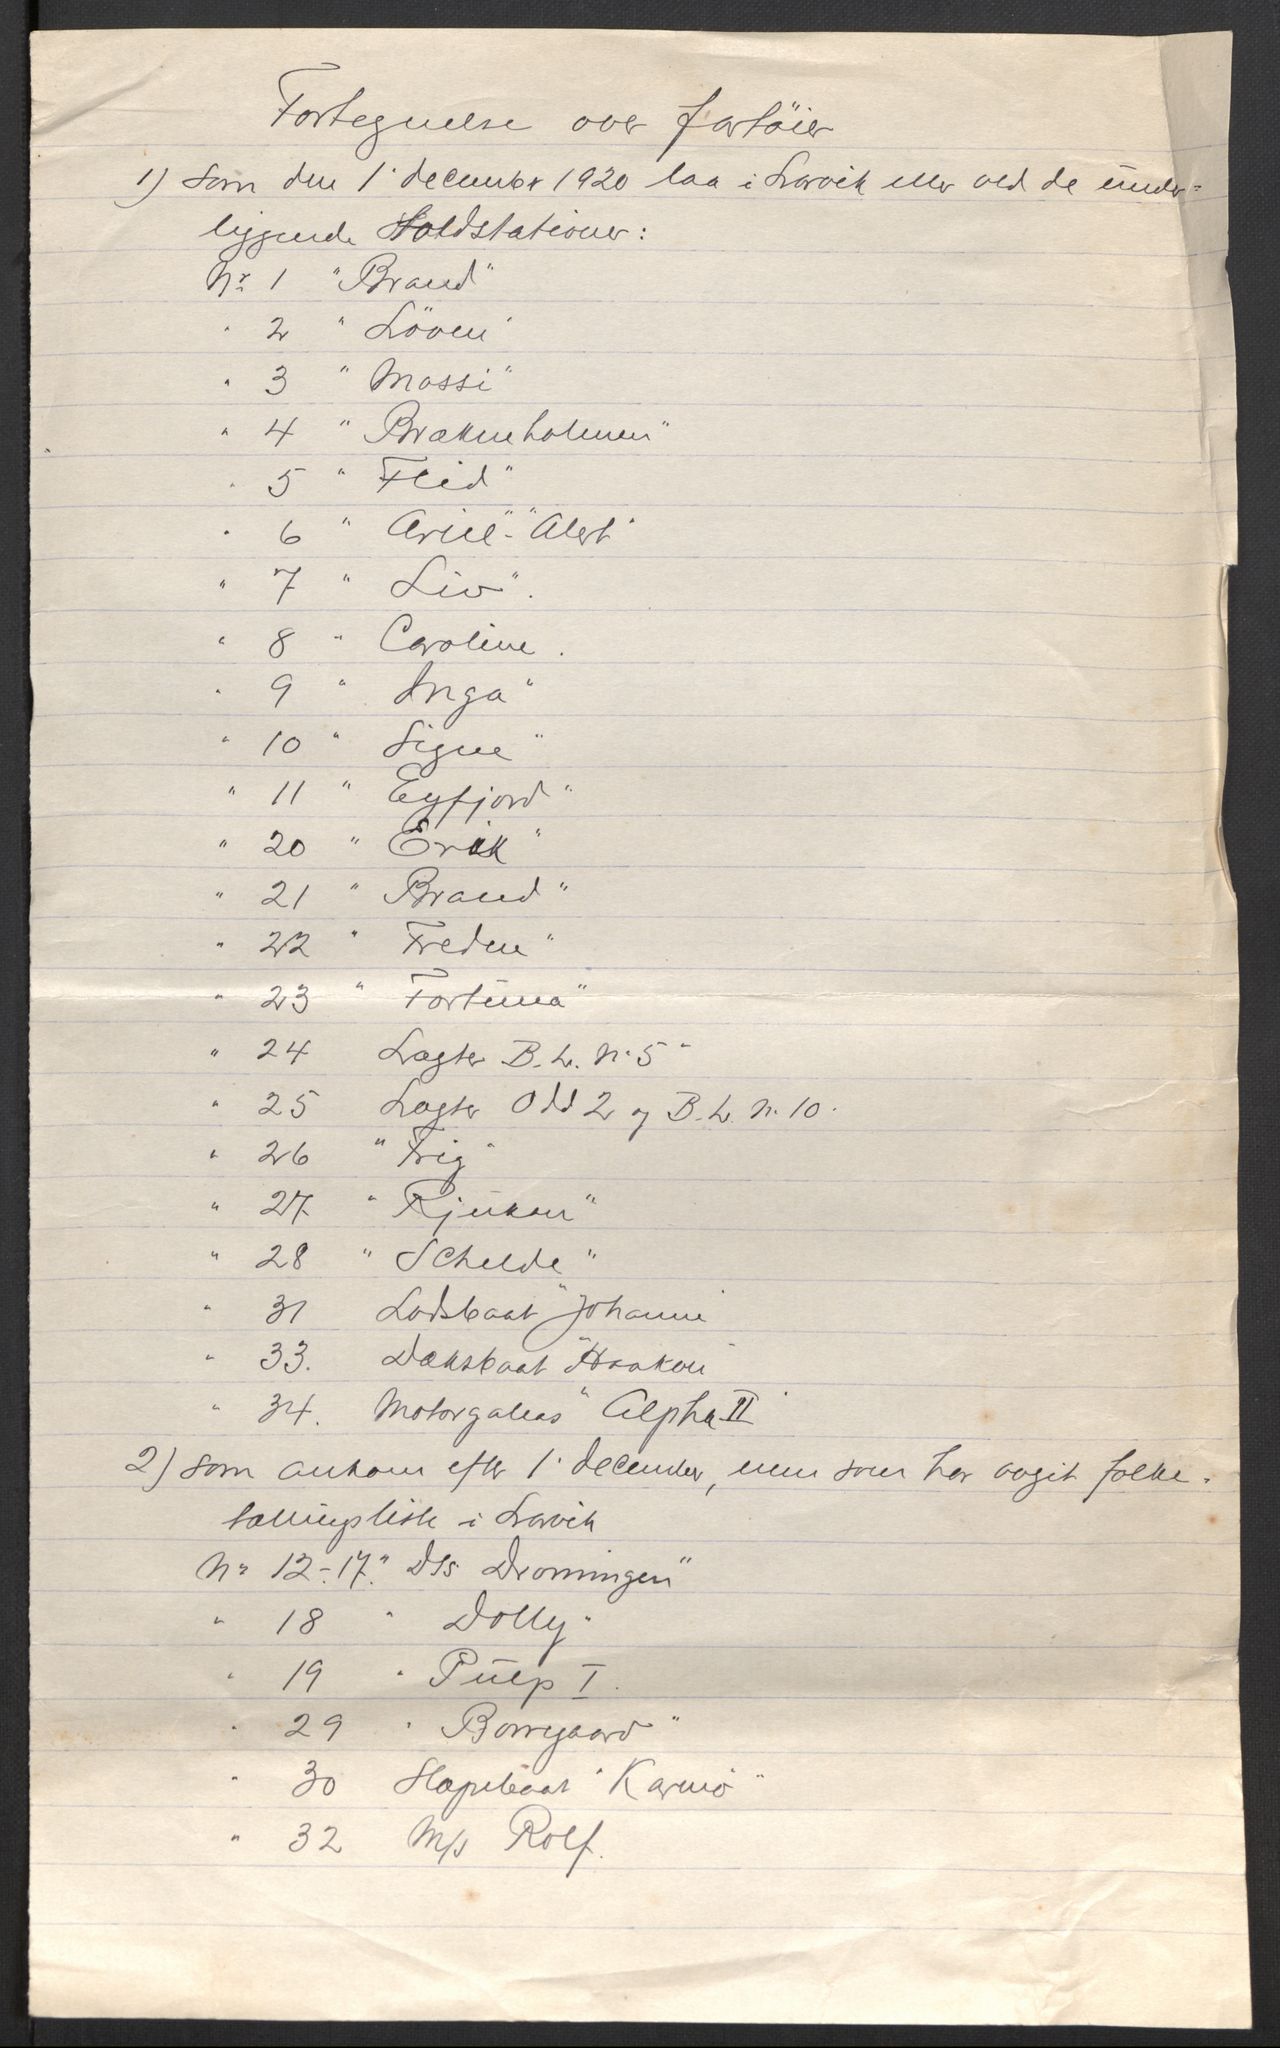 Fortegnelse over fartöier
1) som den 1' december 1920 laa i Larvik eller ved de under-
liggende Toldstationer:
Nr. 1 "Brand"
" 2 " Löven"
" 3 " Mossi"
" 4 " Brækneholmen"
" 5 " Flid"
" 6 " Ariel"-"Alert"
" 7 " Liv".
" 8 " Caroline.
" 9 " Inga"
" 10 " Signe"
" 11 " Eyfjord"
" 20 " Erik"
" 21 " Brand"
" 22 " Freden"
" 23 " Fortuna"
" 24 Lægter B.L. Nr 5"
" 25 Lægter Odd 2 og B.L. Nr. 10.
" 26 " Frig"
" 27 " Rjukan"
" 28 " Schelde"
" 31 Lodsbaat "Johanne
" 33. Dæksbaat "Haakon"
" 34. Motorgaleas "Alpha II"
2) som ankom efter 1' december, men som har avgit folke-
tællingsliste i Larvik
Nr 12-17." D/s Dronningen"
" 18 " Dolly"
" 19 " Pulp I.
" 29 " Borregaard"
" 30 Slæpebaat "Karmö"
" 32 M/s Rolf.